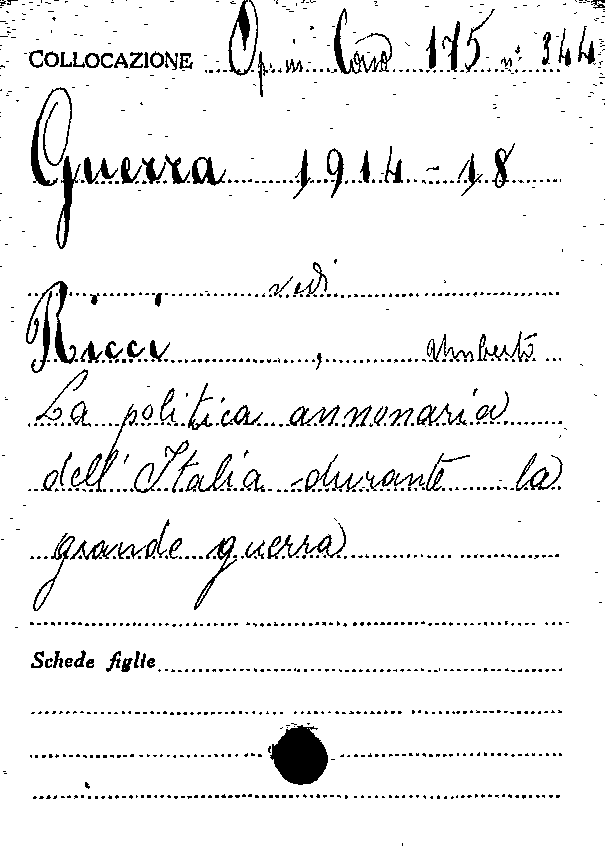 COLLOCAZIONE Op. in Corso 175 n. 344
Guerra 1914-18
vedi
Ricci, Umberto
La politica annonaria
dell'Italia durante la
grande guerra
Schede figlie